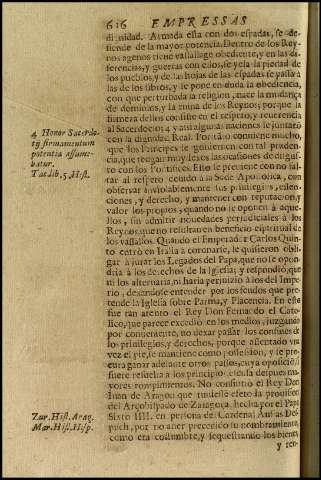 616 EMPRESSAS
dignidad. Armada esta con dos espadas, se de-
fiende de la mayor potencia. Dentro de los Rey-
nos agenos tiene vassallage obediente, y en las di-
ferencias, y guerras con ellos, se yela la piedad de
los pueblos, y de las hojas de las espadas se passa à
las de los libros, y se pone en duda la obediencia,
con que perturbada la religion, nace la mudança
de dominios, y la ruina de los Reynos; porque la
firmeza dellos consiste en el respeto, y reverencia
al Sacerdocio; 4 y assi algunas naciones le juntaron
con la dignidad Real. Por tanto conviene mucho,
que los Principes se goviernen con tal pruden-
cia, que tengan muy lexos las ocasiones de disgus-
to con los Pontifices. Esto se previene con no fal-
tar al respeto devido à la Sede Apostolica, con
observar inviolablemente sus privilegios, essen-
ciones, y derecho, y mantener con reputacion, y
valor los propios, quando no se oponen à aque-
llos, sin admitir novedades perjudiciales à los
Reynos, que no resultan en beneficio espiritual de
los vassallos. Quando el Emperador Carlos Quin-
to entrò en Italia à coronarse, le quisieron obli-
gar à jurar los Legados del Papa, que no se opo-
dria à los derechos de la Iglesia; y respondiò, que
ni los alteraria, ni haria perjuizio à los del Impe-
rio, dexandose entender por los feudos que pre-
tende la Iglesia sobre Parma, y Placencia. En esto
fue tan atento el Rey Don Fernando el Cato-
lico, que parece excediò en los medios, juzgando
por conveniente, no dexar passar los confines de
los privilegios, y derechos, porque assentado una
vez el pie, se mantiene como possession, y se pro-
cura ganar adelante otros passos, cuya oposiciò si
fuere resuelta à los principios, escusa despues ma-
yores rompimientos. No consintiò el Rey Don
Iuan de Aragon que tuviesse efeto la provision
del Arçobispado de Zaragoça, hecha por el Papa
Sixto IIII. en persona de Cardenal Ausias Des-
puch, por no aver precedido su nombramiento,
como era costumbre, y sequestrando los bienes,
y ren-
4 Honor Sacerdo-
tij firmamentum
potentia assume-
batur.
Tac. lib. 5. Hist.
Zur. Hist. Arag.
Mar. Hist. Hisp.